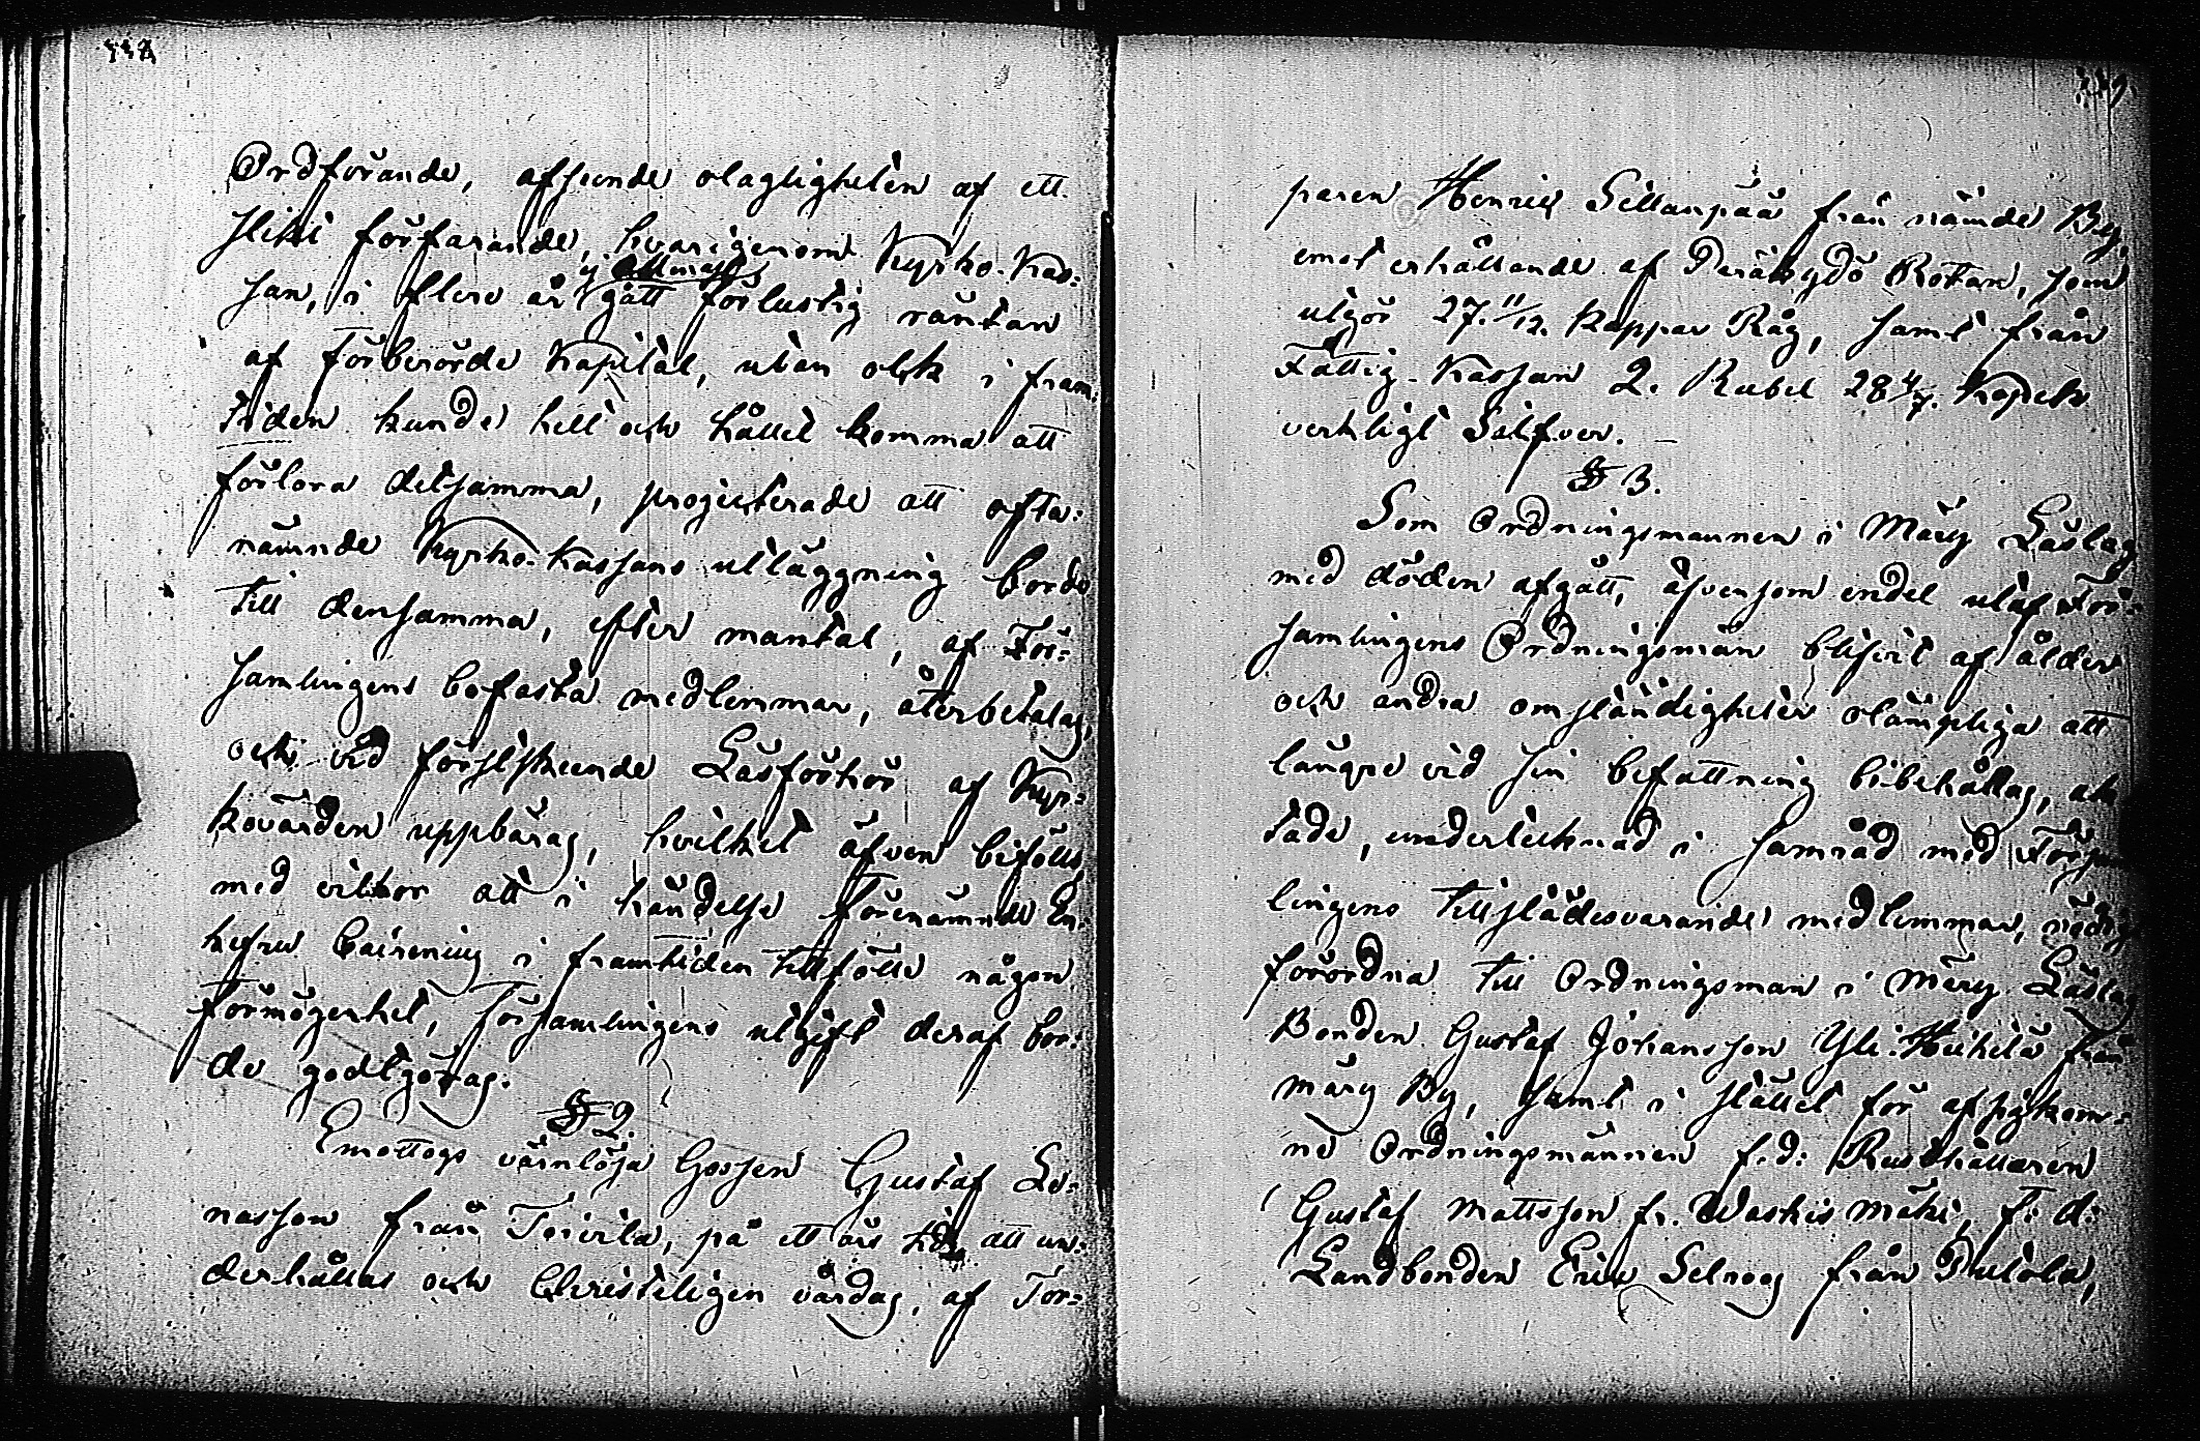 118
Ordförande, afseende olagligheten af ett
slikt förfarande, hvarigenom Kyrko-Kas-
san, i flere år ej allenast gått förlustig räntan
af förberörde Kapital, utan ock i fram-
tiden kunde helt och hållet komma att
förlora detsamma, projecterade att ofta-
nämnde Kyrko-Kassans utläggning borde
till densamma, efter mantal, af För-
samlingens bofasta medlemmar, återbetalas,
och vid förstskeende Läsförhör af Kyr-
kovärden uppbäras, hvilket äfven bifölls,
med vilkor att i händelse förenämnde En-
kefru Cairenius i framtiden tillfölle någon
förmögenhet, Församlingens utgift deraf bor-
de godtgöras.
§ 2.
Emottogs värnlösa Gossen Gustaf Le-
nasson från Toivila, på ett års tid, att un-
derhållas och Christeligen vårdas, af Tor-
119.
paren Henric Sillanpää från nämde By,
emot erhållande af Peräkydö Rotan, som
utgör 27. 11/12. Kappar Råg, samt från
Fattig-Kassan 2. Rubel 28 4/7. Kopek
verkligt Silfver.
§ 3.
Som Ordningsmannen i Märy Läslag
med döden afgått, äfvensom endel utaf För-
samlingens Ordningsmän blifvit af ålder
och andra omständigheter olämpliga att
längre vid sin befattning bibehållas, ak
tade, undertecknad i samråd med Försam
lingens tillstädesvarande medlemmar, nödig
förordna till Ordningsman i Märy Läslag
Bonden Gustaf Johansson Yli-Heikilä från
Märy By, samt i stället för afsigkom-
ne Ordningsmännen f.d: Rusthållaren
Gustaf Mattsson fr. Waskismäki, f: d:
Landbonden Eric Selroos från Putola,